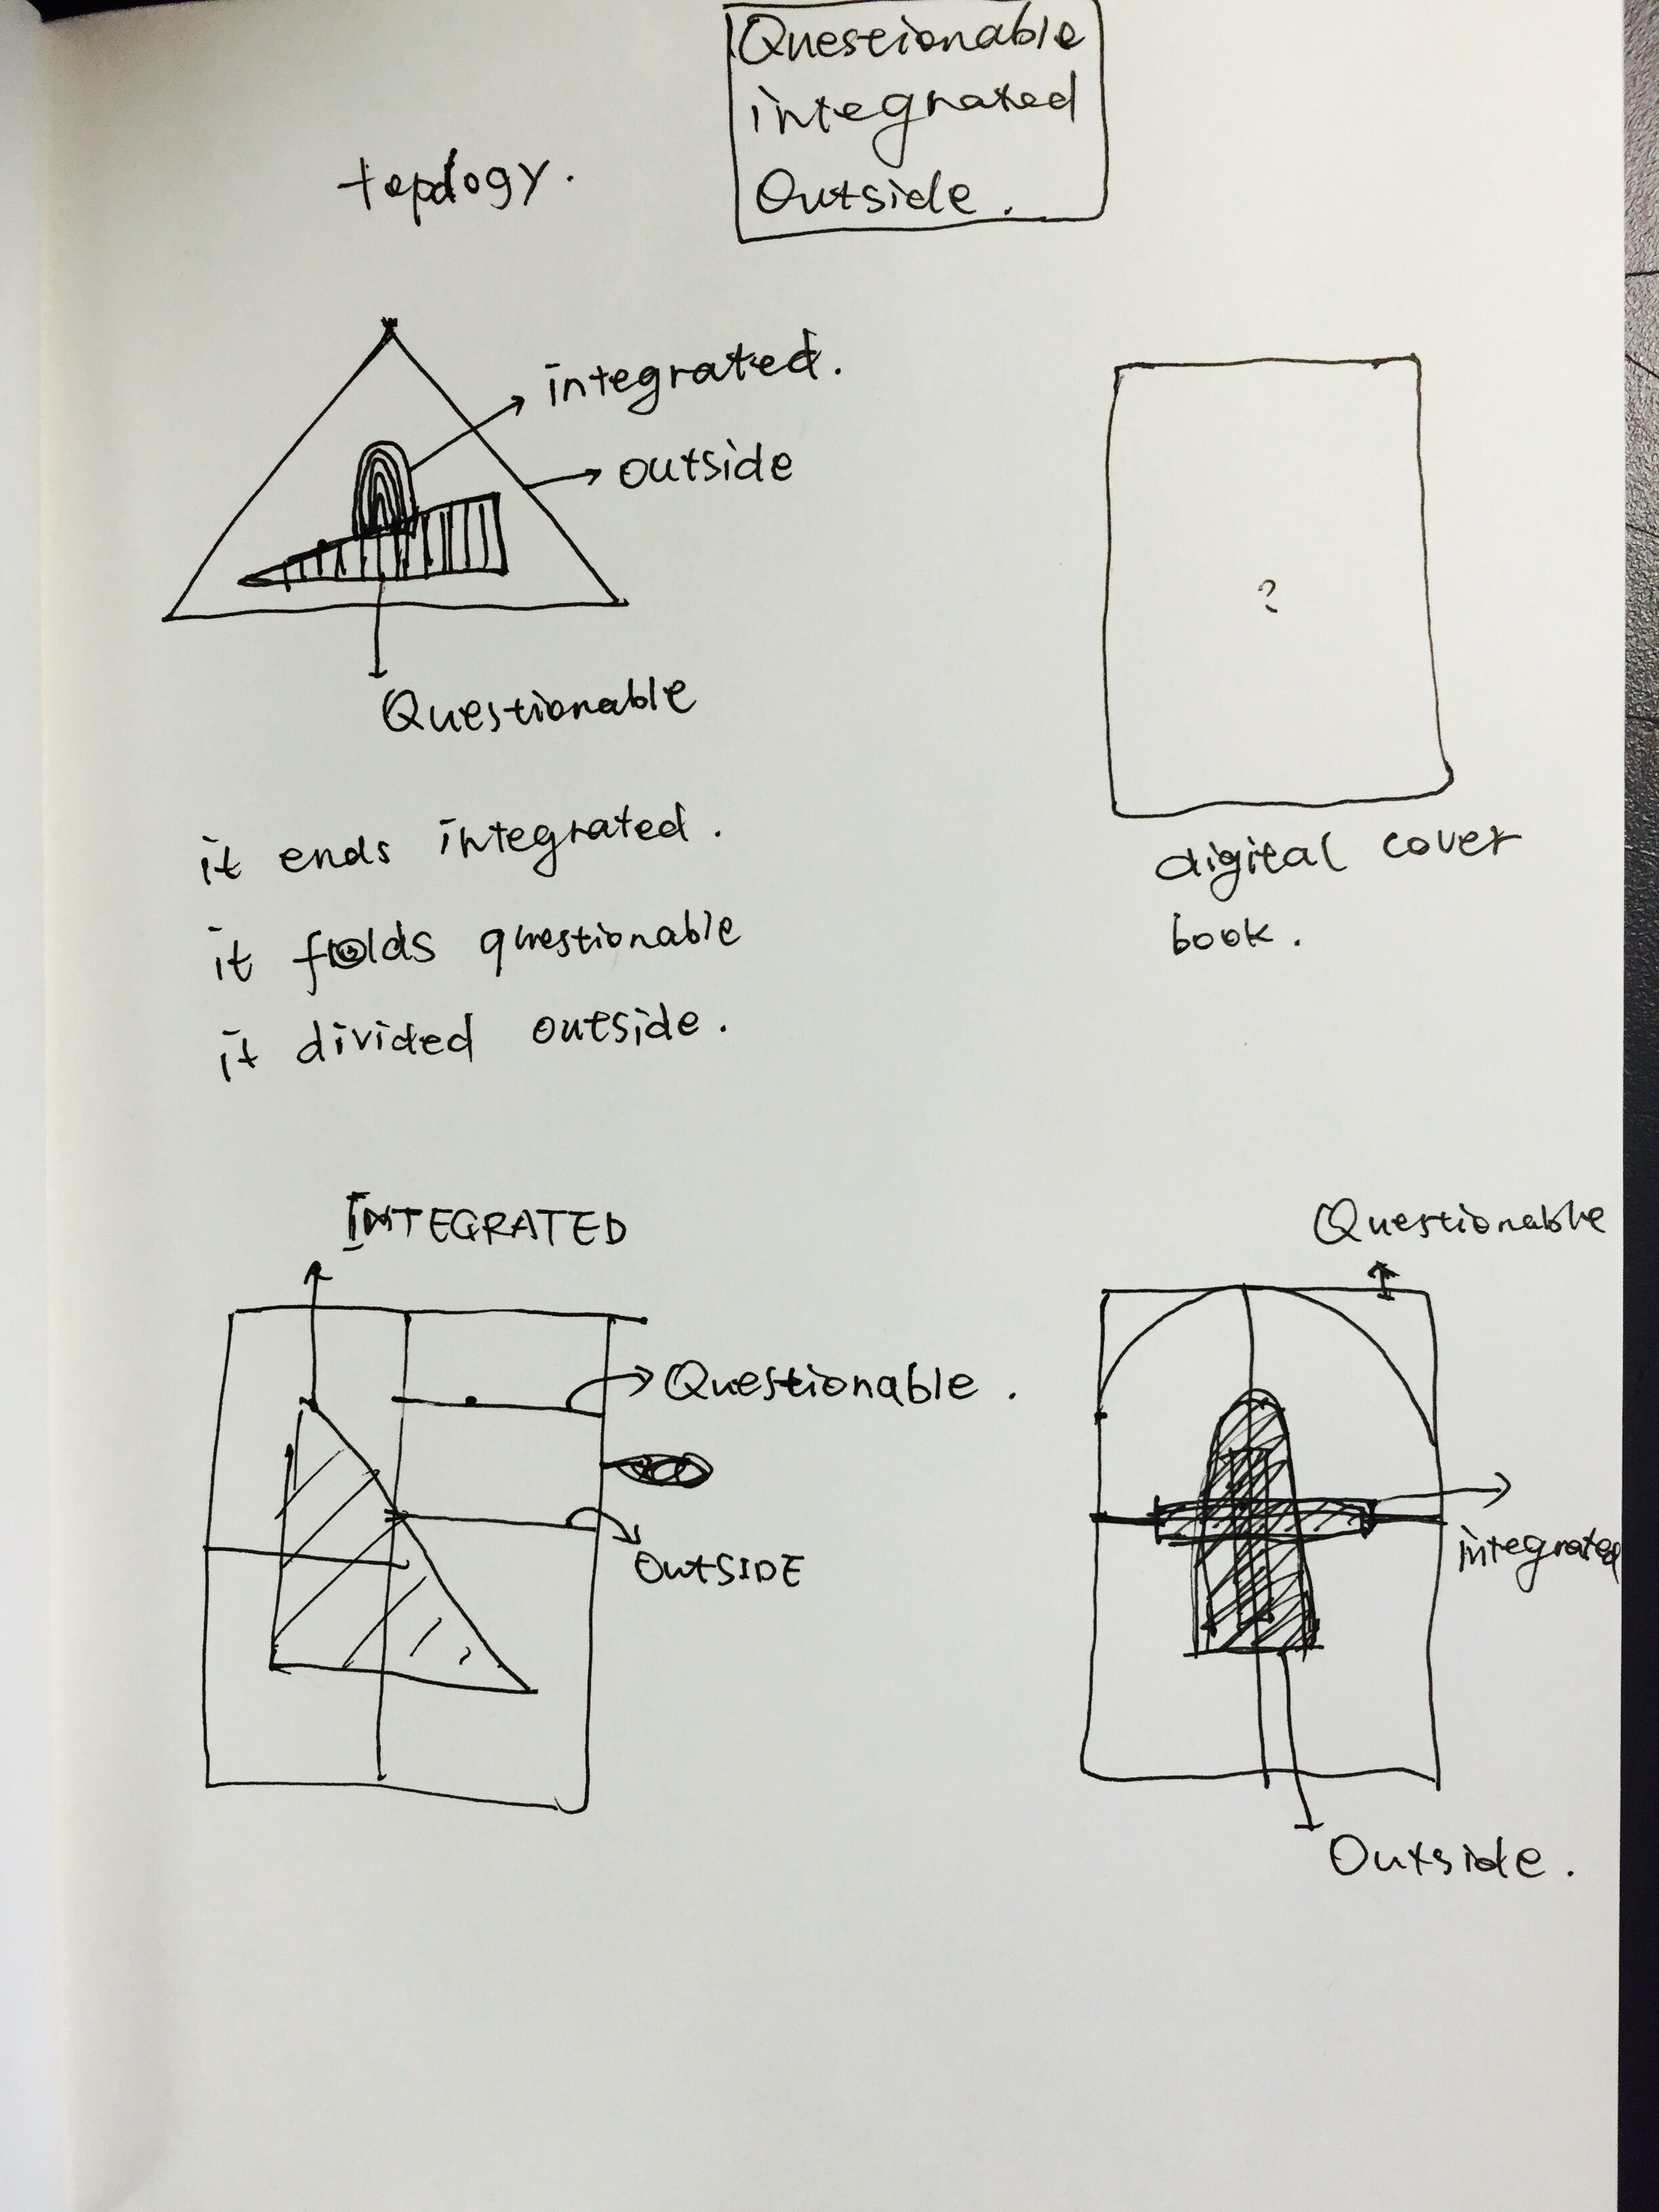 Questionable
integrated
Outside.
topology.
integrated.
outside
Questionable
?
digital cover
book.
it ends integrated.
it folds questionable
it divided outside.
INTEGRATED
Questionable.
OUTSIDE
Questionable
integrated
Outside.